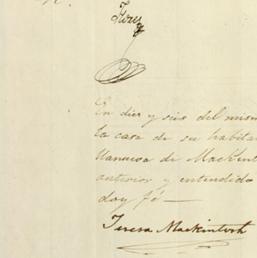 En diez y seis del mism
la casa de su habita
Villanueva de Mackint
anterior y entendido
doy fé —
Teresa Mackintosh